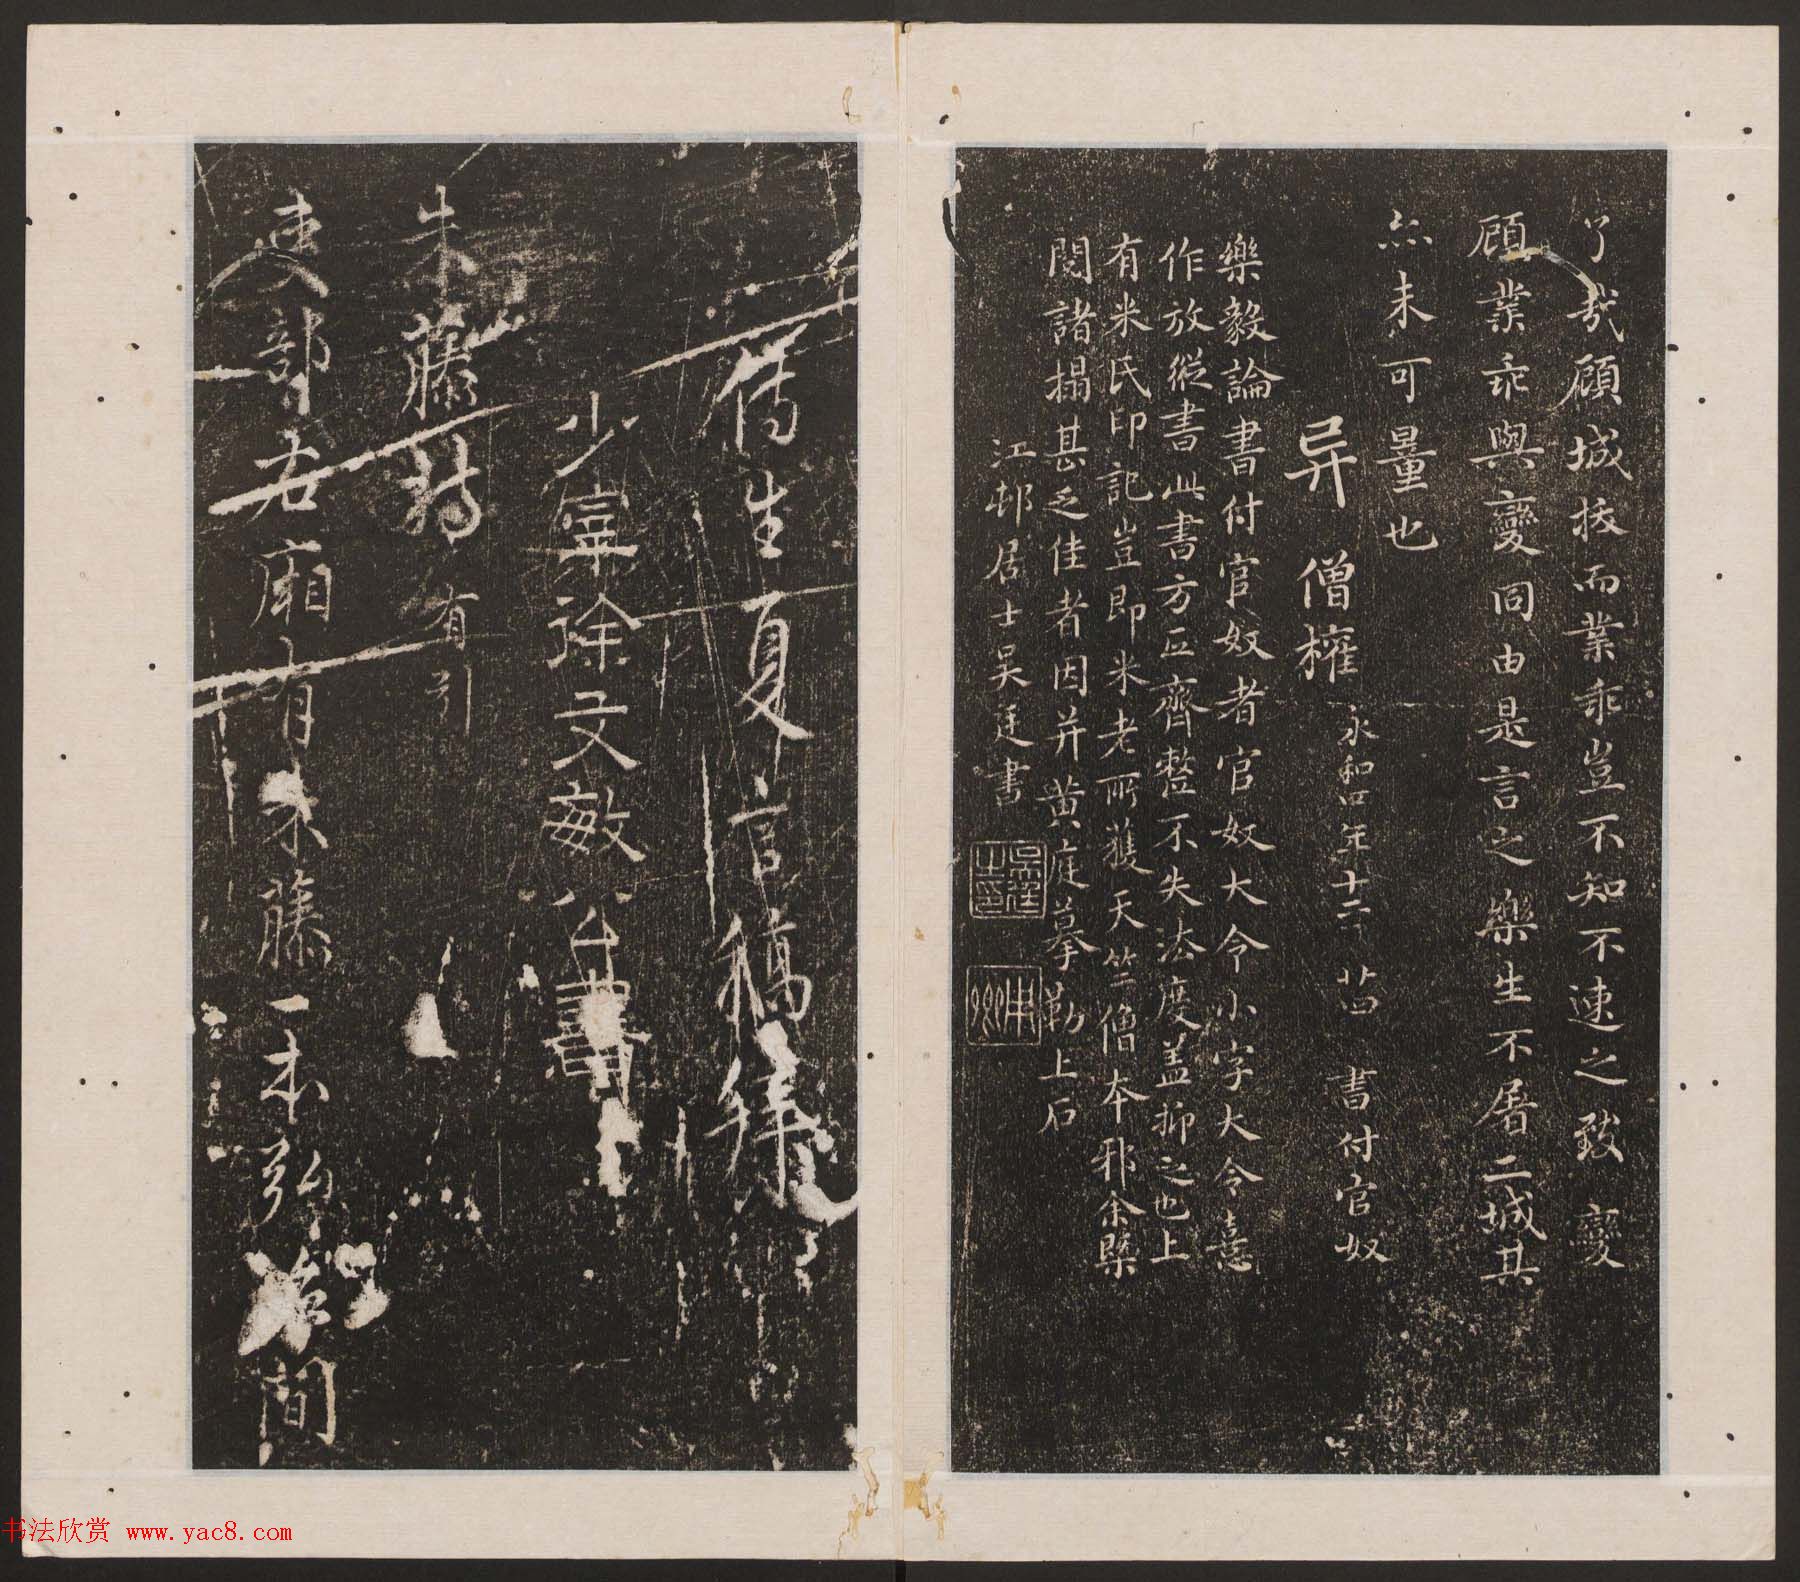 了哉顧城拔而業乖豈不知不速之致變
顧業乖與變同由是言之樂生不屠二城其
亦未可量也
异 僧權 永和四年十二月廿四日 書付官奴
樂毅論書付官奴者官奴大令小字大令意
作放縱書此書方正齊整不失法度蓋抑之也上
有米氏印記豈即米老所獲天竺僧本邪余槩
閱諸搨甚乏佳者因并黃庭摹勒上石
江邨居士吴廷書
吳廷之印
舊生夏言稿拜
少宰徐文敏公書
朱藤詩 有引
吏部右廂有朱藤一本弘治間
书法欣赏 www.yac8.com